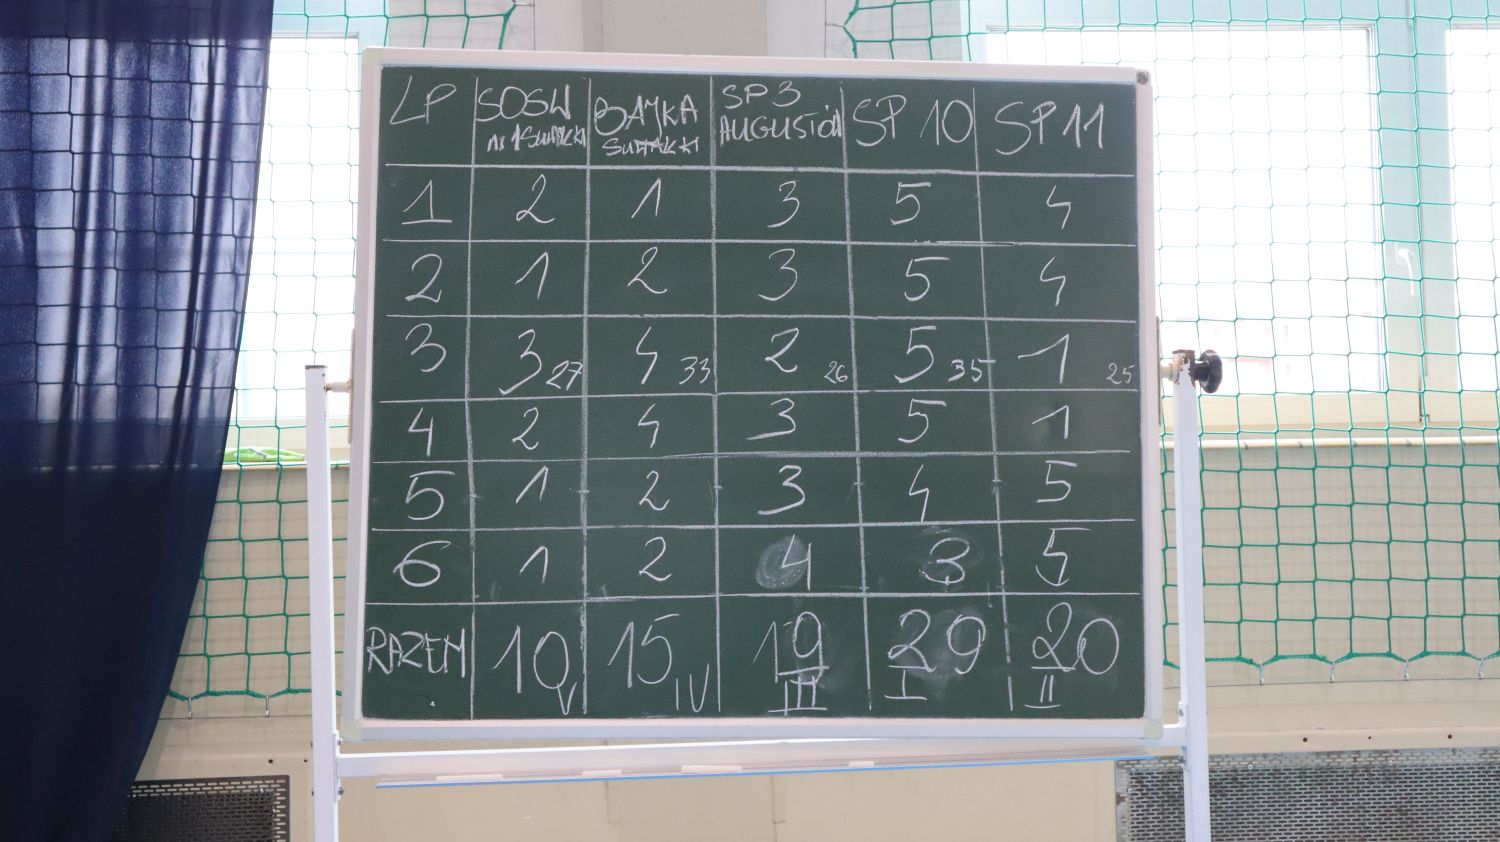 LP SOSW BAJKA SP3 SP 10 SP 11
nr 1 Suwałki Suwałki AUGUSTÓW
1 2 1 3 5 4
2 1 2 3 5 4
3 3 27 4 33 2 26 5 35 1 25
4 2 4 3 5 1
5 1 2 3 4 5
6 1 2 4 3 5
RAZEM 10 15 19 29 20
V IV III I II